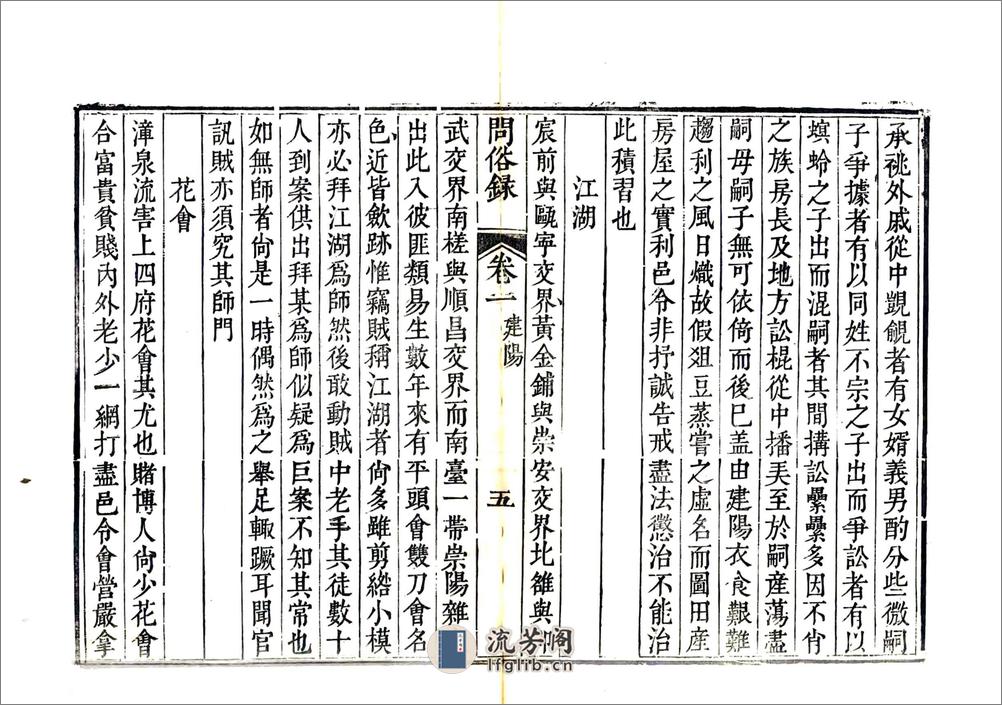 承祧外戚從中覬覦者有女婿義男酌分些微嗣
子爭據者有以同姓不宗之子出而爭訟者有以
螟蛉之子出而混嗣者其間搆訟纍纍多因不肖
之族房長及地方訟棍從中播弄至於嗣產蕩盡
嗣母嗣子無可依倚而後已盖由建陽衣食艱難
趨利之風日熾故假俎豆蒸嘗之虛名而圖田產
房屋之實利邑令非抒誠告戒盡法懲治不能治
此積習也
江湖
宸前與甌寧交界黃金鋪與崇安交界北雒與
問俗録
卷一
建陽
五
武交界南槎與順昌交界而南臺一帶崇陽雜
出此入彼匪類易生數年來有平頭會雙刀會名
色近皆歛跡惟竊賊稱江湖者尙多雖剪綹小模
亦必拜江湖爲師然後敢動賊中老手其徒數十
人到案供出拜某爲師似疑爲巨案不知其常也
如無師者尙是一時偶然爲之舉足輙蹶耳聞官
訊賊亦須究其師門
花會
漳泉流害上四府花會其尤也賭博人尙少花會
合富貴貧賤內外老少一網打盡邑令會營嚴拿
流芳閣
lfglib.cn